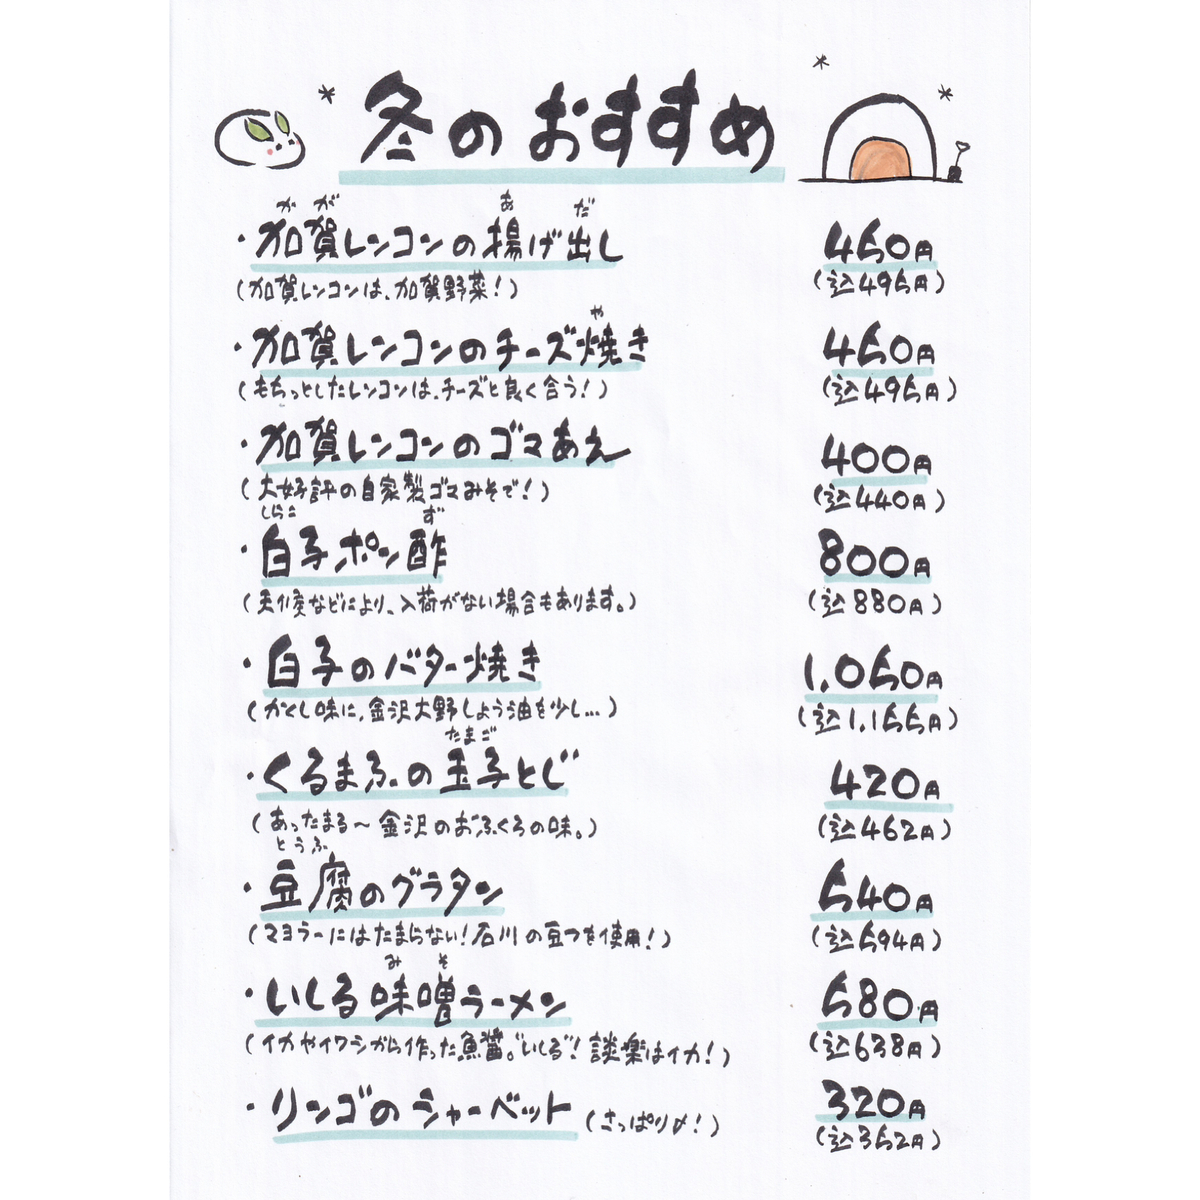 冬のおすすめ
か が あ だ
・加賀レンコンの揚げ出し 450円
(加賀レンコンは、加賀野菜!) (込495円)
や
・加賀レンコンのチーズ焼き 450円
(もちっとしたレンコンは、チーズと良く合う!) (込495円)
・加賀レンコンのゴマあえ 400円
(大好評の自家製ゴマみそで!) (込440円)
しらこ ず
・白子ポン酢 800円
(天候などにより、入荷がない場合もあります。) (込880円)
・白子のバター焼き 1,050円
(かくし味に、金沢大野しょう油を少し…) (込1,155円)
たまご
・くるまふの玉子とじ 420円
(あったまる〜金沢のおふくろの味。) (込462円)
とうふ
・豆腐のグラタン 540円
(マヨラーにはたまらない!石川の豆つを使用!) (込594円)
み そ
・いしる味噌ラーメン 580円
(イカやイワシから作った魚醤。"いしる"!談楽はイカ!) (込638円)
・リンゴのシャーベット (さっぱり〆!) 320円
(込352円)